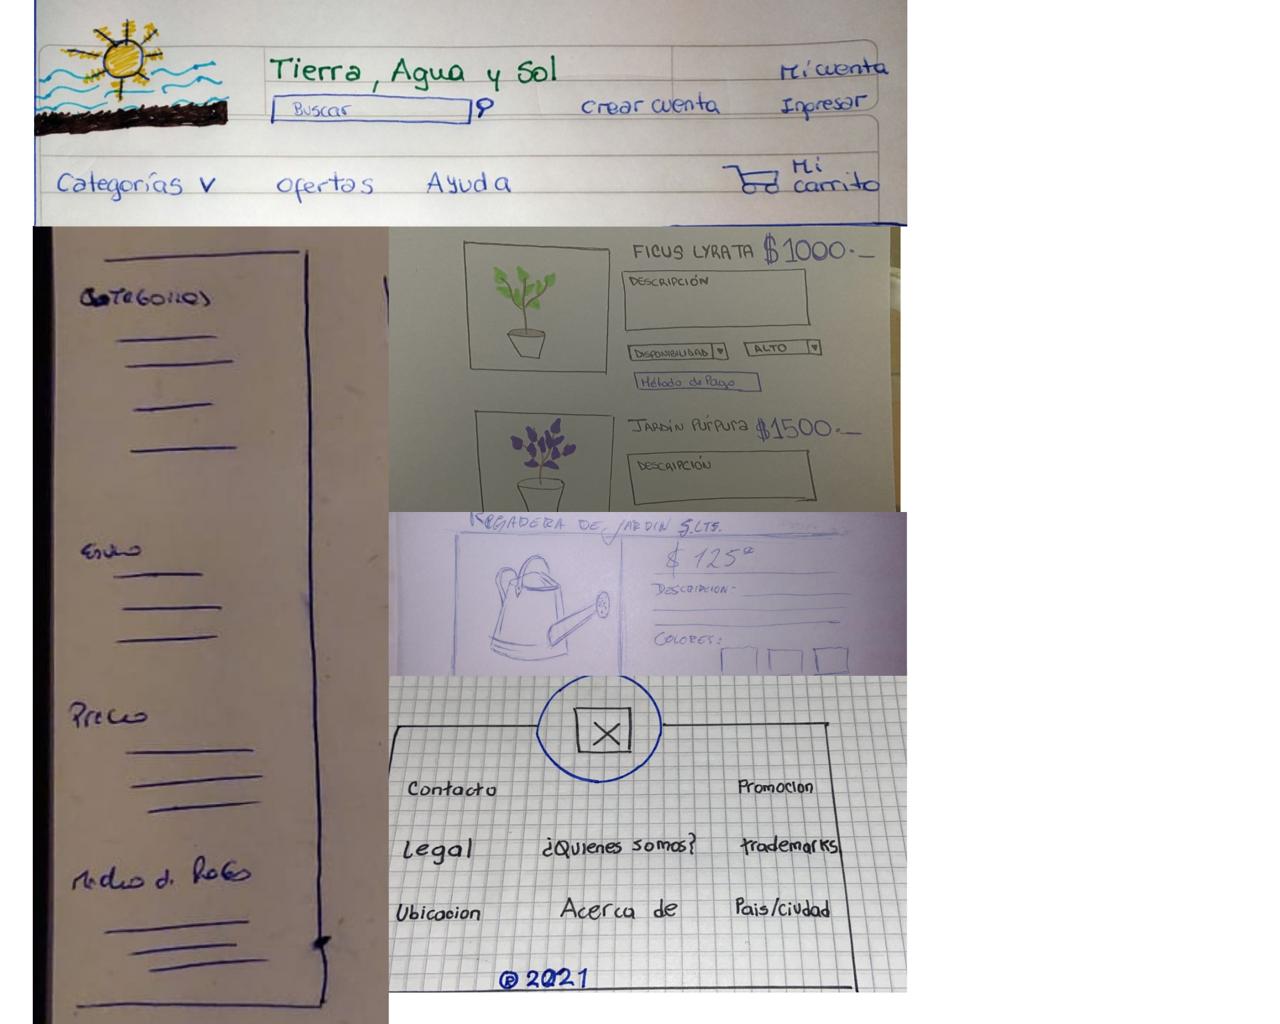 Tierra, Agua y Sol
Mi cuenta
Buscar
crear cuenta
Ingresar
Categorías v
ofertas
Ayuda
Mi
carrito
Categorias
Precio
FICUS LYRATA $1000.-
DESCRIPCIÓN
DISPONIBILIDAD
ALTO
Método de Pago
JARDÍN PÚRPURA $1500.-
DESCRIPCIÓN
REGADERA DE JARDIN 5 LTS.
$ 125
DESCRIPCION-
COLORES:
Contacto
Promocion
Legal
¿Quienes somos?
trademarks
Ubicacion
Acerca de
Pais/ciudad
® 2021